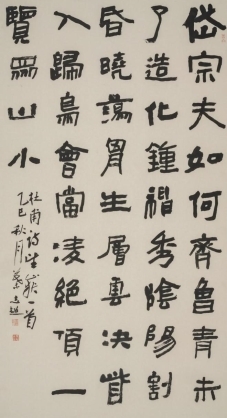 岱宗夫如何齊魯青未
了造化鍾神秀陰陽割
昏曉蕩胷生層雲決眥
入歸鳥會當凌絕頂一
覽眾山小
杜甫詩望嶽一首
乙巳秋月